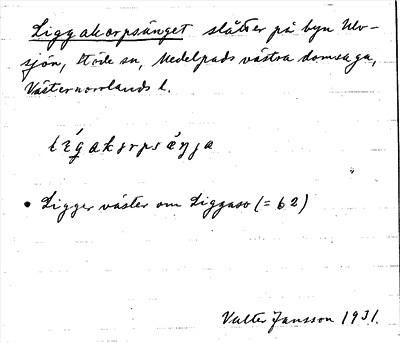 Liggakorpsänget slåtter på byn Ulv-
sjön, Stöde sn, Medelpads västra domsaga,
Västernorrlands l.
• Ligger väster om Liggaso (= 62)
Valter Jansson 1931.